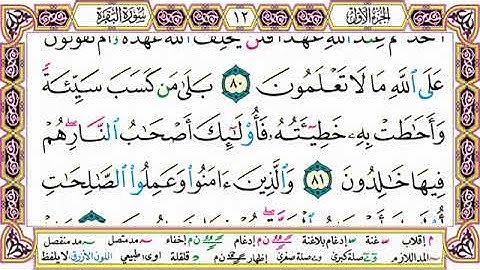 الجزء الأول ١٢ سورة البقرة
عِندَ اللَّهِ عَهْدًا فَلَن يُخْلِفَ اللَّهُ عَهْدَهُ أَمْ تَقُولُونَ
عَلَى اللَّهِ مَا لَا تَعْلَمُونَ ٨٠ بَلَىٰ مَن كَسَبَ سَيِّئَةً
وَأَحَاطَتْ بِهِ خَطِيٓئَتُهُ فَأُولَٰٓئِكَ أَصْحَابُ النَّارِ هُمْ
فِيهَا خَالِدُونَ ٨١ وَالَّذِينَ ءَامَنُوا وَعَمِلُوا الصَّالِحَاتِ
م إقلاب غنة إدغام بلاغنة إدغام إخفاء مد متصل مد منفصل
المد اللازم صلة كبرى صلة صغرى إظهار قلقلة طبيعي اللون الأزرق لا يلفظ